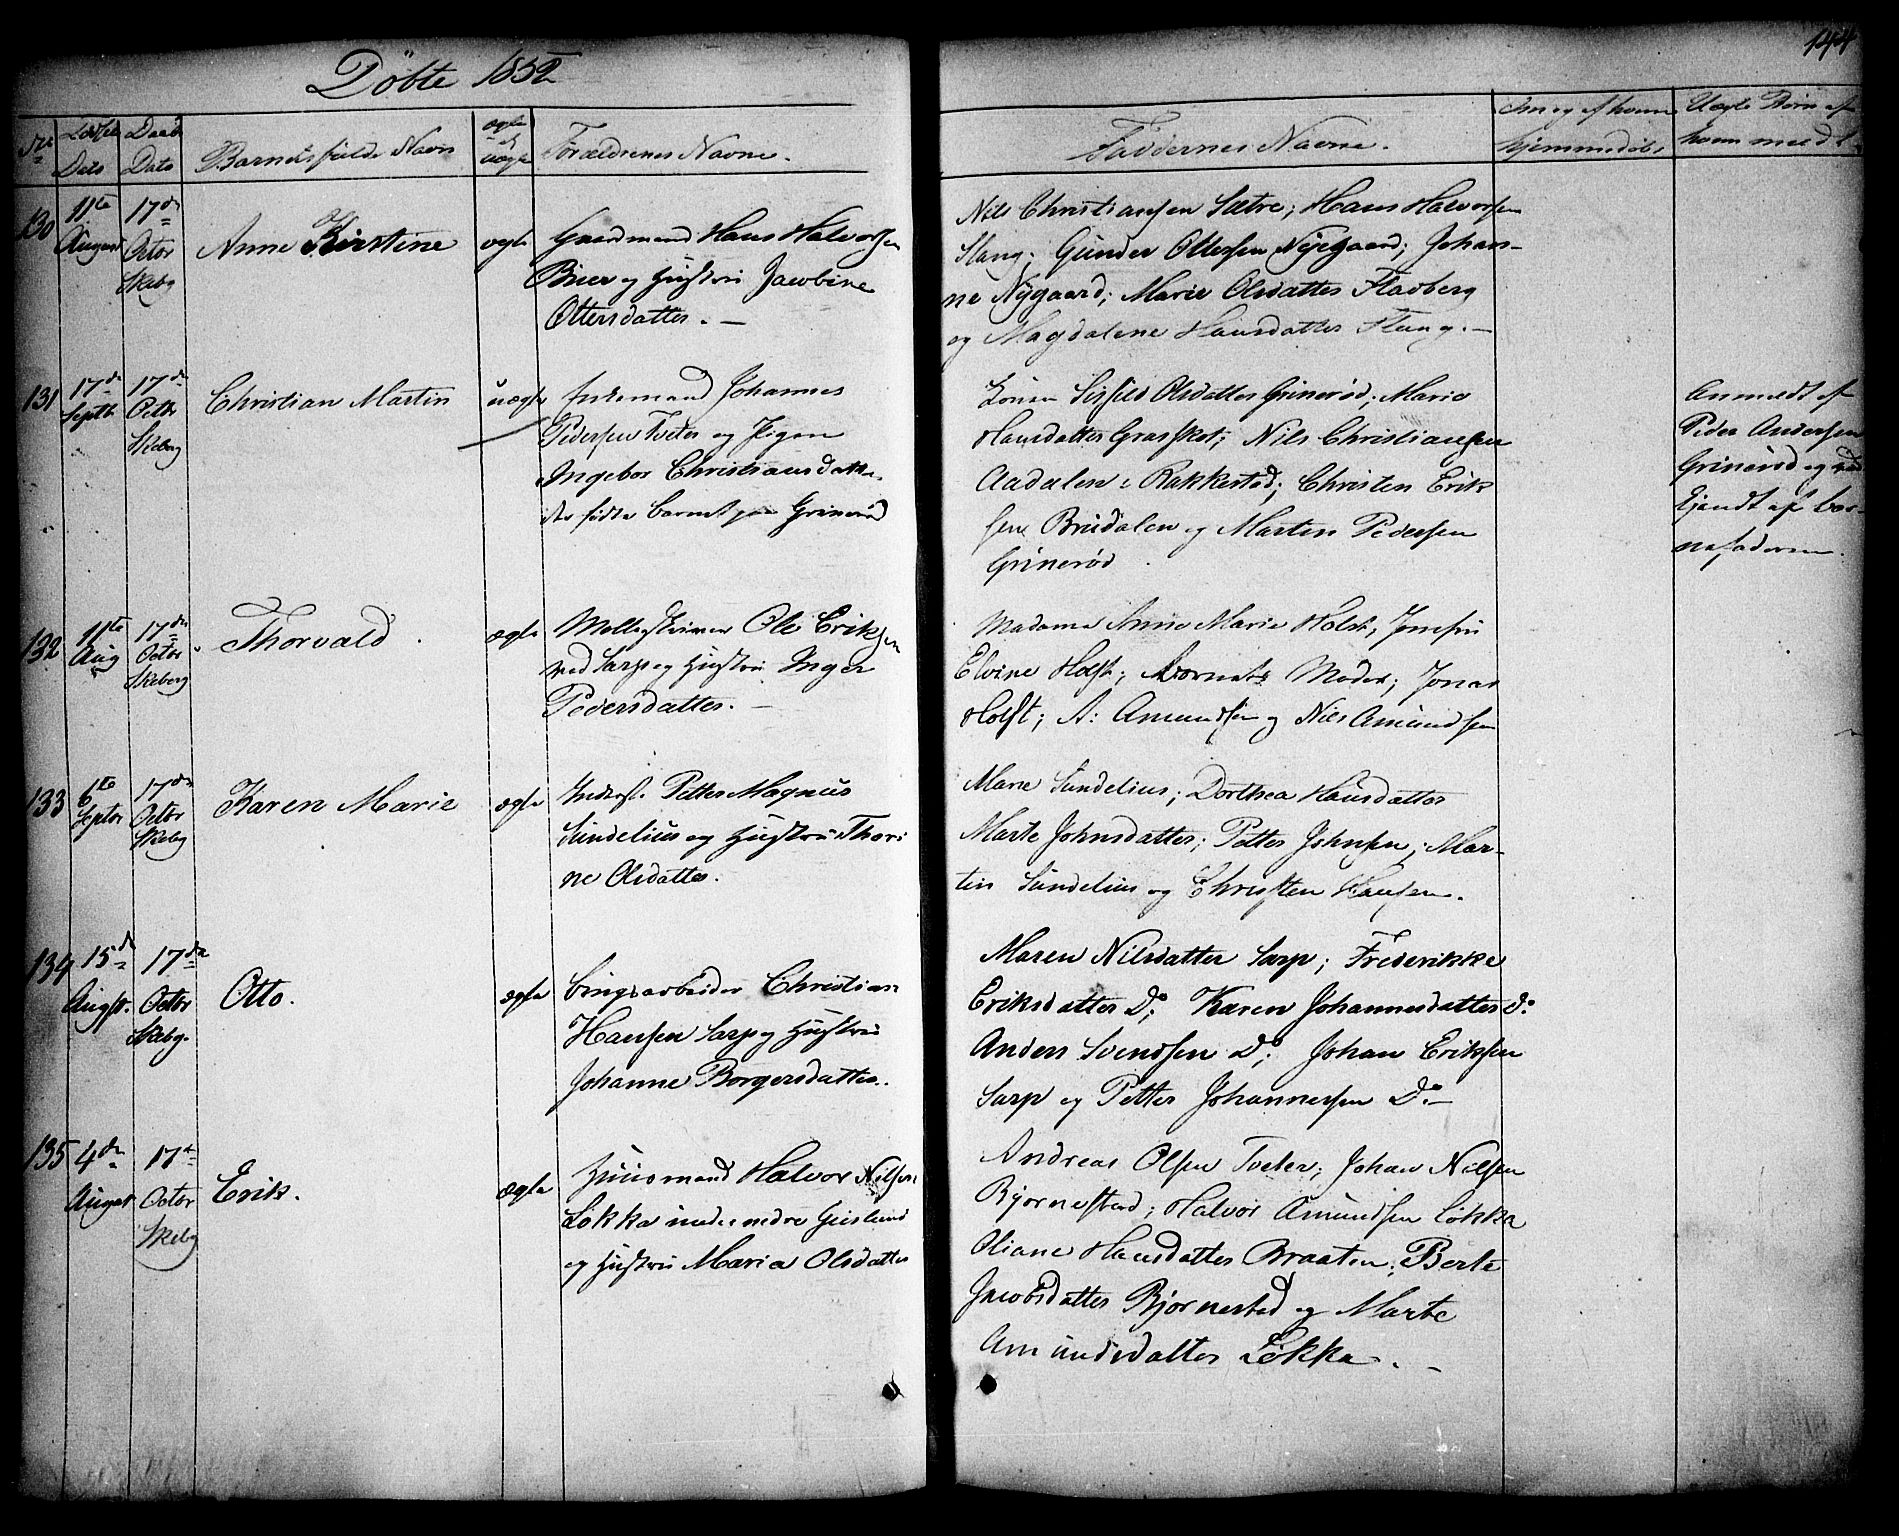 Döbte 1852
144
No
Fødsels
Dato
Daab
Dato
Barnets fulde Navn
ægte
el
uægte
Forældrenes Navne.
Faddernes Navne.
Om og af hvem
hjemmedøbt
Uægte Børn af
hvem meldt
130
11te
August
17de
Octor
Skebg
Anne Kirstine
ægte
Gaardmand Hans Halvorsen
Buer og Hustru Jacobine
Ottersdatter. —
Nils Christiansen Sætre; Hans Halvorsen
Stang; Gunder Ottersen Nyegaard; Johan-
ne Nygaard; Marie Olsdatter Flatberg
og Magdalene Hansdatter Stang. —
131
17de
Septbr
17de
Octbr
Skeberg
Christian Martin
uægte
Enkemand Johannes
Pedersen Tveter og Pigen
Ingebor Christiansdatter
der fødte barnet paa Grinerød
Olsdatter Grinerød; Marie
Hansdatter Graskot; Nils Christiansen
Aadalen i Rakkestad; Christen Erik
sen Brudalen og Marten Pedersen
Grinerød
Anmeldt af
Peder Andersen
Grinerød og ved
kjendt af bar-
nefaderen.
132
11te
Aug
17de
Octbr
Skeberg
Thorvald
ægte
Ole Eriksen
ved Sarp og Hustru Inger
Pedersdatter. —
Madame Anne Marie Holst; Jomfru
Elvine Holst; Barnets Moder; Jonas
Holst; A: Amundsen og Nils Amundsen
133
6te
Septbr
17de
Octbr
Skebg
Karen Marie
ægte
Inderst Petter Magnus
Sundelius og Hustru Thori
ne Olsdatter.
Marie Sundelius; Dorthea Hansdatter
Marte Johnsdatter; Petter Johnsen; Mar-
tin Sundelius og Christen Hansen.
134
15de
Augst.
17de
Octbr
Skebg.
Otto.
ægte
Brugsarbeider Christian
Hansen Sarp og Hustru
Johanne Borgersdatter.
Maren Nilsdatter Sarp; Frederikke
Eriksdatter Do; Karen Johannesdatter Do
Anders Svendsen Do; Johan Eriksen
Sarp og Petter Johannesen Do —
135
4de
August
17de
Octbr
Skebg
Erik.
ægte
Huusmand Halvor Nilsen
Løkka under nedre Gueslund
og Hustru Maria Olsdatter
Andreas Olsen Tveter; Johan Nilsen
Bjørnestad; Halvor Amundsen Løkka
Oliane Hansdatter Braaten; Berte
Jacobsdatter Bjørnestad og Marte
Amundsdatter Løkka. —